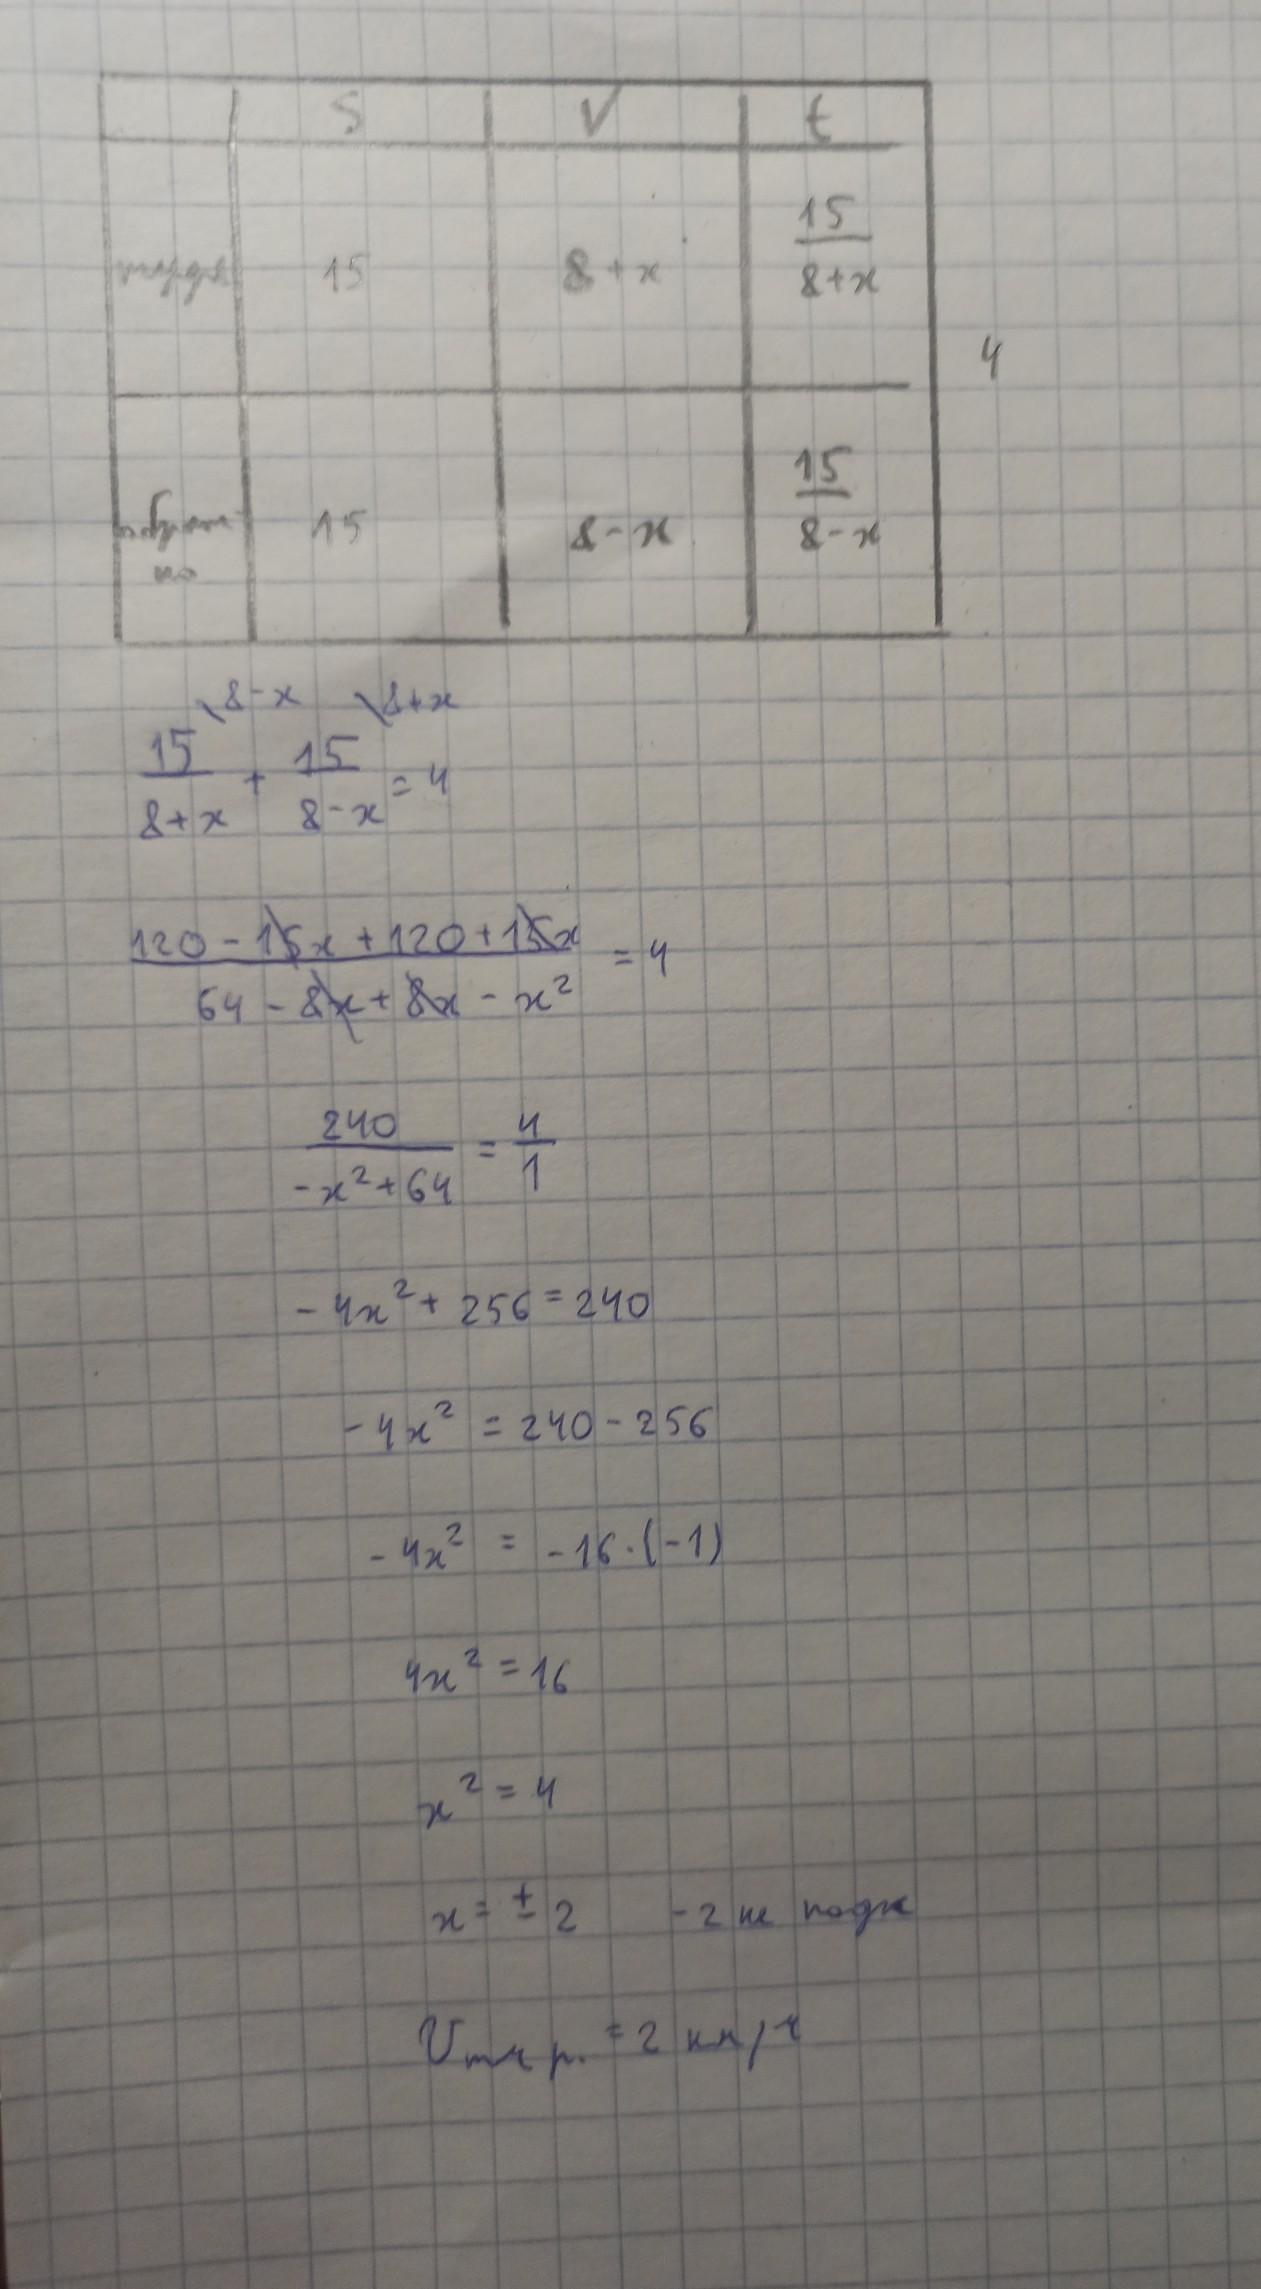 S V t
туда 15 8+x 15/(8+x)
4
обратно 15 8-x 15/(8-x)
\8-x \8+x
15/(8+x) + 15/(8-x) = 4
(120-15x+120+15x)/(64-8x+8x-x²) = 4
240/(-x²+64) = 4/1
-4x²+256=240
-4x² = 240-256
-4x² = -16·(-1)
4x² = 16
x² = 4
x = ±2 -2 не подх
Vтеч р. = 2 км/ч